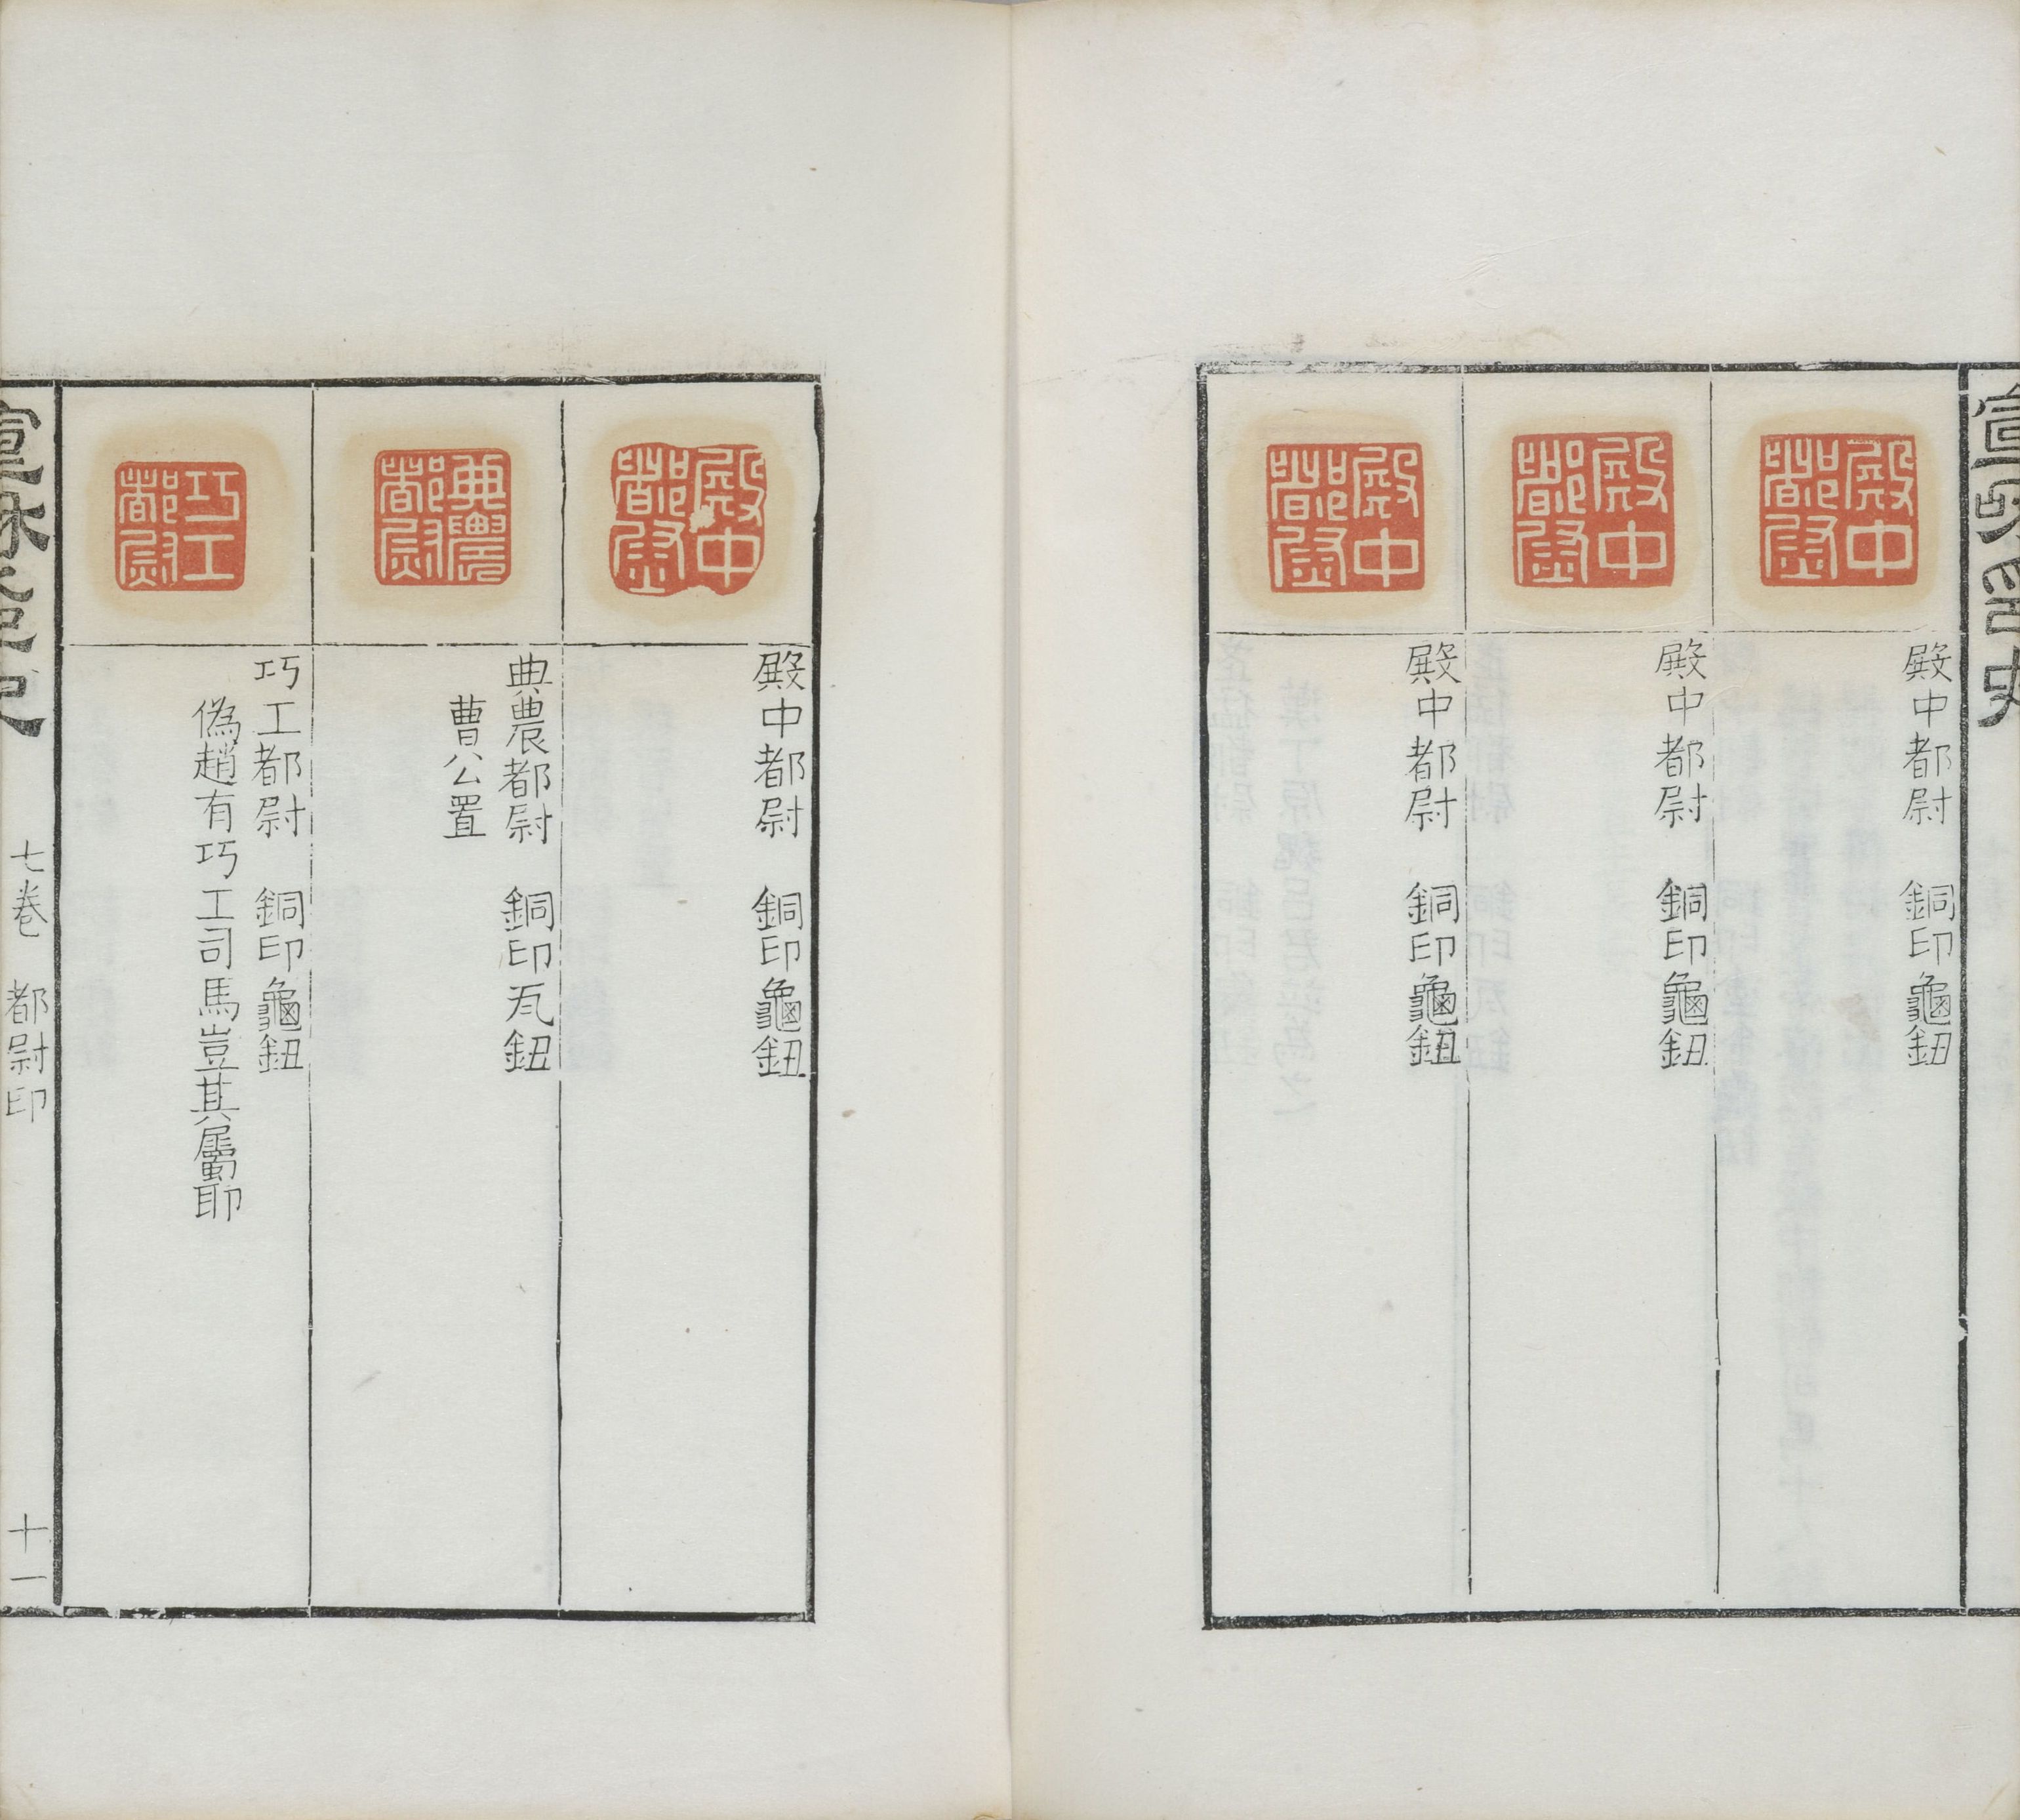 宣和印史
殿中都尉
殿中都尉 銅印龜鈕
殿中都尉
殿中都尉 銅印龜鈕
殿中都尉
殿中都尉 銅印龜鈕
殿中都尉
殿中都尉 銅印龜鈕
典農都尉
典農都尉 銅印瓦鈕
曹公置
巧工都尉
巧工都尉 銅印龜鈕
偽趙有巧工司馬豈其屬耶
宣和印史 七卷 都尉印 十一